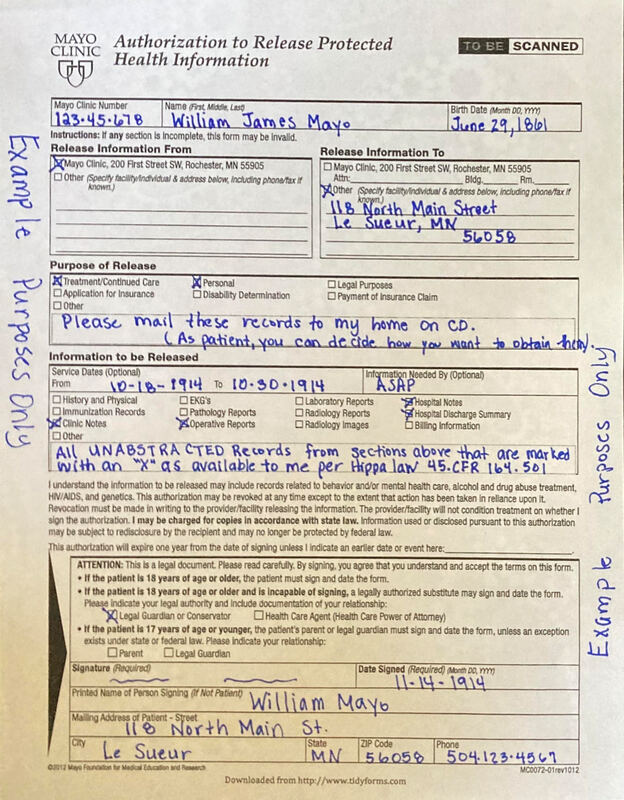 MAYO CLINIC
Authorization to Release Protected Health Information
TO BE SCANNED
Mayo Clinic Number Name (First, Middle, Last) Birth Date (Month DD, YYYY)
123-45-678 William James Mayo June 29, 1861
Instructions: If any section is incomplete, this form may be invalid.
Release Information From
X Mayo Clinic, 200 First Street SW, Rochester, MN 55905
☐ Other (Specify facility/individual & address below, including phone/fax if known.)
Release Information To
☐ Mayo Clinic, 200 First Street SW, Rochester, MN 55905
Attn: Bldg. Rm.
X Other (Specify facility/individual & address below, including phone/fax if known.)
118 North Main Street
Le Sueur, MN
56058
Purpose of Release
X Treatment/Continued Care X Personal ☐ Legal Purposes
☐ Application for Insurance ☐ Disability Determination ☐ Payment of Insurance Claim
☐ Other
Please mail these records to my home on CD.
(As patient, you can decide how you want to obtain them).
Information to be Released
Service Dates (Optional) Information Needed By (Optional)
From 10-18-1914 To 10-30-1914 ASAP
☐ History and Physical ☐ EKG's ☐ Laboratory Reports X Hospital Notes
☐ Immunization Records ☐ Pathology Reports ☐ Radiology Reports X Hospital Discharge Summary
X Clinic Notes X Operative Reports ☐ Radiology Images ☐ Billing Information
☐ Other
All UNABSTRACTED Records from sections above that are marked
with an "X" as available to me per Hippa law 45.CFR 164.501
I understand the information to be released may include records related to behavior and/or mental health care, alcohol and drug abuse treatment,
HIV/AIDS, and genetics. This authorization may be revoked at any time except to the extent that action has been taken in reliance upon it.
Revocation must be made in writing to the provider/facility releasing the information. The provider/facility will not condition treatment on whether I
sign the authorization. I may be charged for copies in accordance with state law. Information used or disclosed pursuant to this authorization
may be subject to redisclosure by the recipient and may no longer be protected by federal law.
This authorization will expire one year from the date of signing unless I indicate an earlier date or event here:
ATTENTION: This is a legal document. Please read carefully. By signing, you agree that you understand and accept the terms on this form.
• If the patient is 18 years of age or older, the patient must sign and date the form.
• If the patient is 18 years of age or older and is incapable of signing, a legally authorized substitute may sign and date the form.
Please indicate your legal authority and include documentation of your relationship:
X Legal Guardian or Conservator ☐ Health Care Agent (Health Care Power of Attorney)
• If the patient is 17 years of age or younger, the patient's parent or legal guardian must sign and date the form, unless an exception
exists under state or federal law. Please indicate your relationship:
☐ Parent ☐ Legal Guardian
Signature (Required) Date Signed (Required) (Month DD, YYYY)
11-14-1914
Printed Name of Person Signing (If Not Patient) William Mayo
Mailing Address of Patient - Street
118 North Main St.
City State ZIP Code Phone
Le Sueur MN 56058 504.123.4567
©2012 Mayo Foundation for Medical Education and Research MC0072-01rev1012
Downloaded from http://www.tidyforms.com
Example Purposes Only
Example Purposes Only